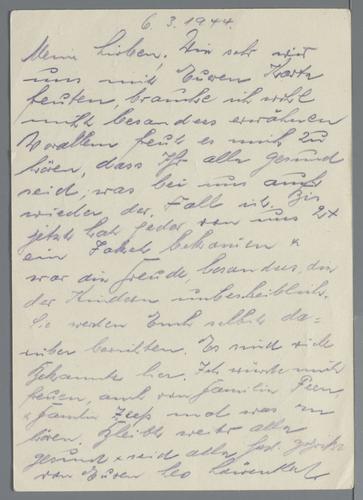 6.3.1944.
Meine Lieben. Wie sehr wir
uns mit Euren Karte
freuten, brauche ich wohl
nicht besonders erwähnen
Vorallem freut es mich zu
hören, dass Ihr alle gesund
seid, was bei uns auch
wieder der Fall ist. Bis
jetzt hat jeder von uns 2x
ein Paket bekommen &
war die Freude, besonders, die
der Kindern unbeschreiblich.
Sie werden Euch selbst da=
rüber berichten. Es sind viele
Bekannte hier. Ich würde mich
freuen, auch von Familie
& Familie mal was zu
hören. Bleibt weiter alle
gesund & seid alle herzl. gegrüßt
von Euren Leo